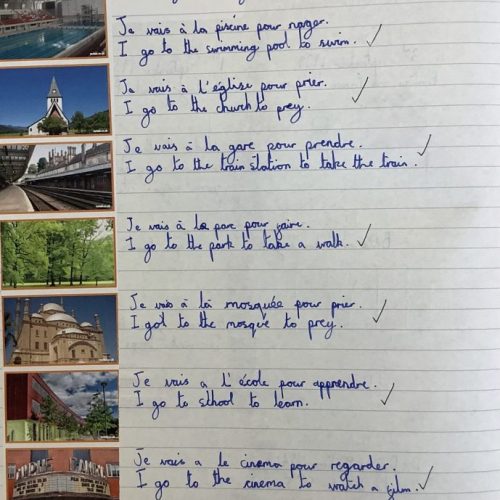 Je vais à la piscine pour nager.
I go to the swimming pool to swim.
Je vais à l'église pour prier.
I go to the church to prey.
Je vais à la gare pour prendre.
I go to the train station to take the train.
Je vais à la parc pour faire.
I go to the park to take a walk.
Je vais à la mosquée pour prier.
I got to the mosque to prey.
Je vais a l'école pour apprendre.
I go to school to learn.
Je vais a le cinema pour regarder.
I go to the cinema to watch a film.